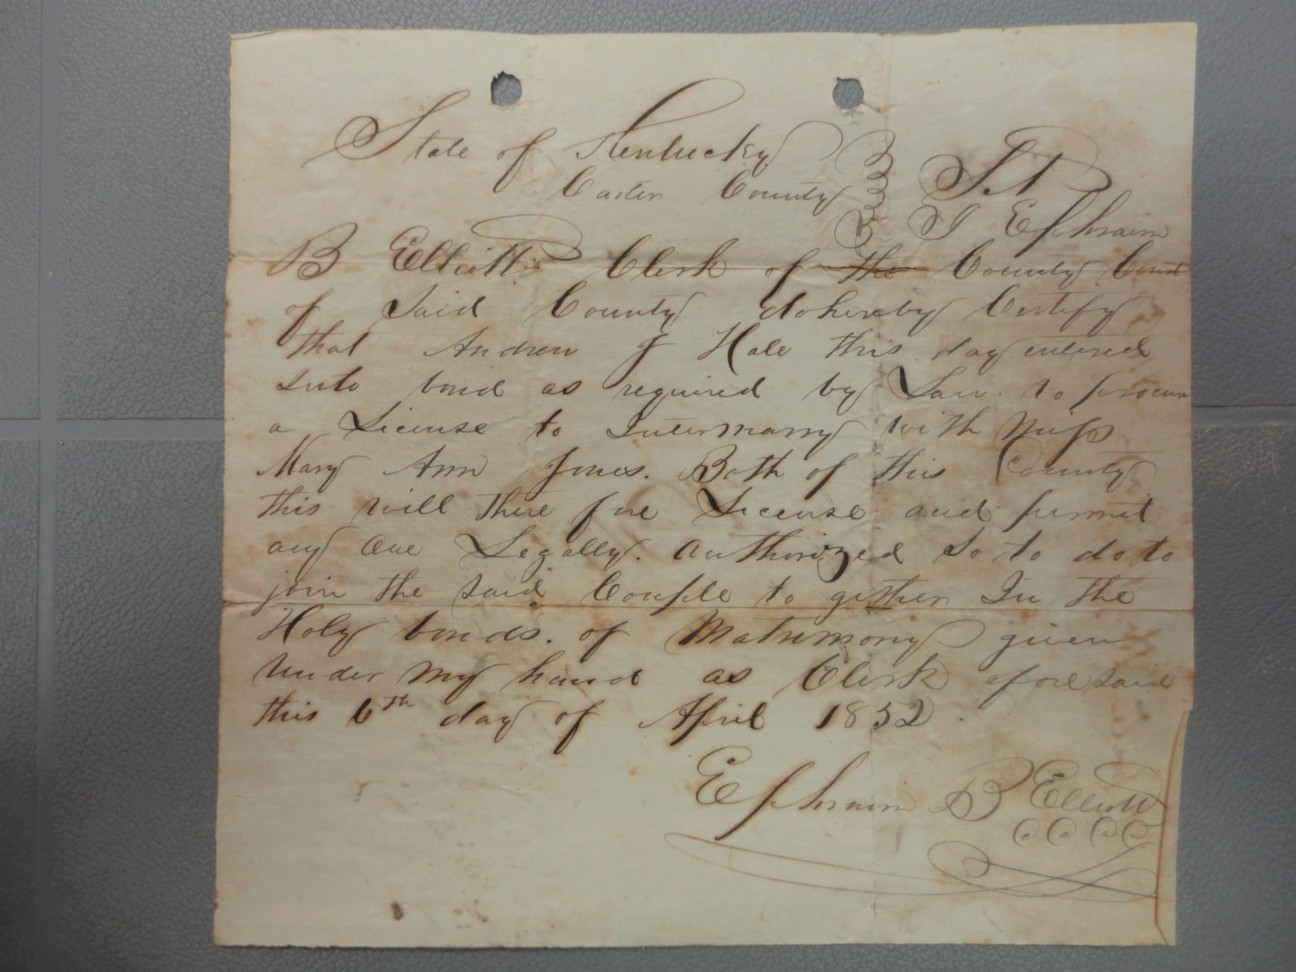 State of Kentucky
Carter County } Sct
I Ephraim
B Elliott Clerk of the County Court
of Said County do hereby Certify
that Andrew J Hale this day entered
Into bond as required by Law. to procure
a License to Intermarry with Miss
Mary Ann Jones. Both of this County
this will there fore License and permit
any one Legally. authorized so to do to
join the said Couple to gether In the
Holy bonds. of Matrimony given
under my hand as Clerk afore said
this 6th day of April 1852
Ephraim B Elliott
CCCC